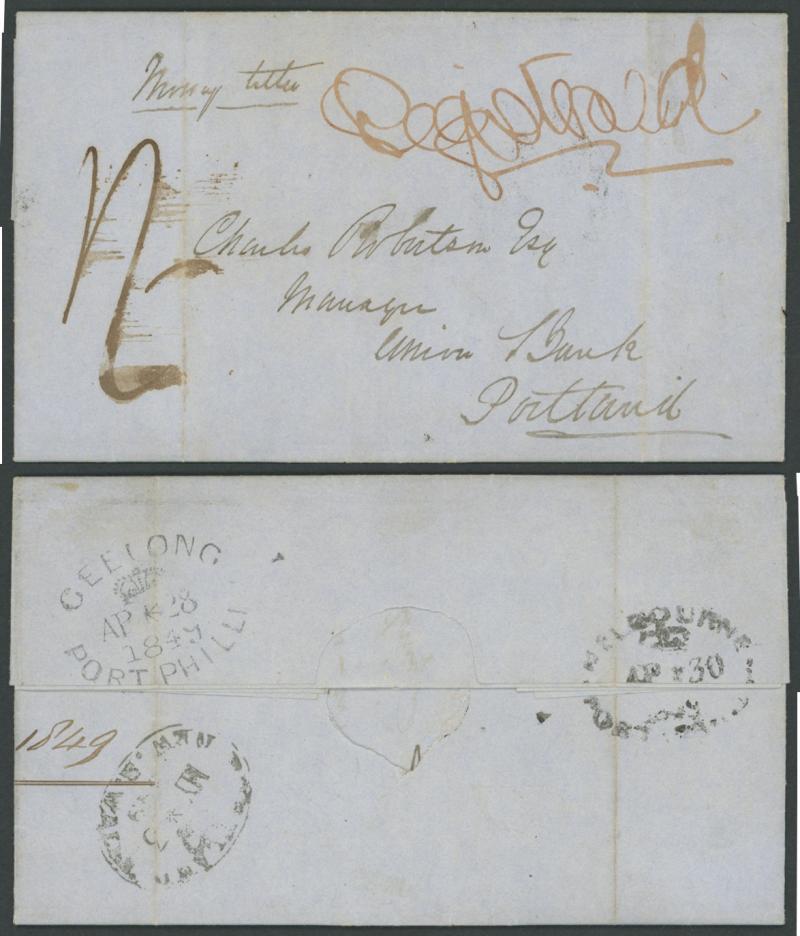 Money letter
Registered
Charles Robertson Esq
Manager
Union Bank
Portland
GEELONG
AP 28
1849
PORT PHILLI
MELBOURNE
AP 30
1849
NEW